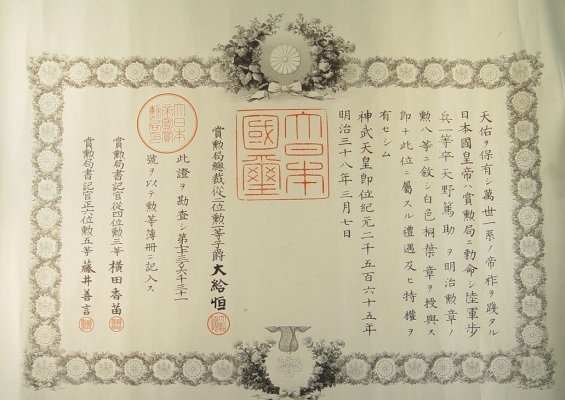 天佑ヲ保有シ萬世一系ノ帝祚ヲ踐タル
日本國皇帝ハ賞勲局ニ勅命シ陸軍歩
兵一等卒天野篤助ヲ明治勲章ノ
勲八等ニ敘シ白色桐葉章ヲ授與ス
即チ此位ニ屬スル禮遇及ヒ特權ヲ
有セシム
神武天皇即位紀元二千五百六十五年
明治三十八年三月七日
大日本
國璽
賞勲局総裁従二位勲一等子爵大給恒
此證ヲ勘査シ第七十三万六千三十一
號ヲ以テ勲等簿冊ニ記入ス
大日本
帝國賞
勲局印
賞勲局書記官従四位勲三等横田香苗
賞勲局書記官正六位勲五等藤井善言